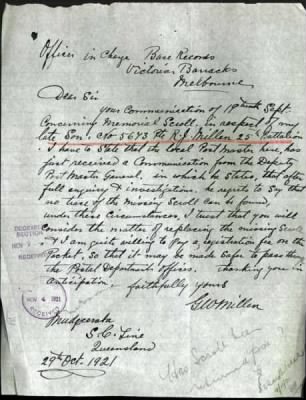 Officer in Charge Base Records
Victoria Barracks
Melbourne
Dear Sir
Your Communication of 19th Sept.
Concerning Memorial Scroll, in respect of my
late Son. No 5643 Pte R.J. Millen 25th Battalion
I have to State that the Local Post Master here, has
just received a Communication from the Deputy
Post Master General, in which he states, that after
full enquiry & investigation, he regrets to Say that
no trace of the missing Scroll can be found,
under these Circumstances, I trust that you will
Consider the matter of replacing the missing Scroll
& I am quite willing to Pay a registration fee on the
Packet, so that it may be made Safe to pass thro
the Postal Department offices. Thanking you in
Anticipation. faithfully yours
G W Millen
Mudgeerata
S.C. Line
Queensland
29th Oct. 1921
SECTION
NOV
RECEIVED
NOV 4 1921
RECEIVED
Has Scroll been
returned